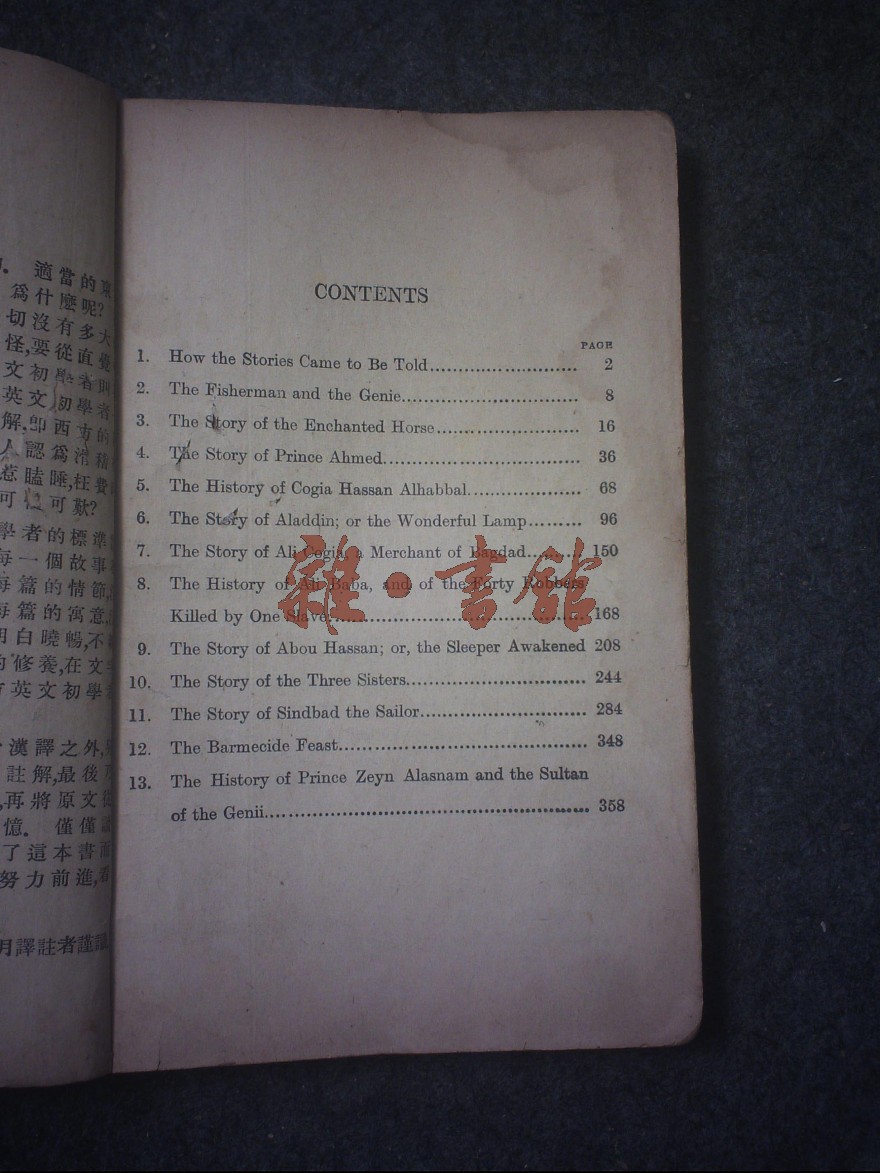 適當的東
爲什麼呢?
切沒有多大
怪,要從直覺
文初學者則
英文初學者
解,卽西方的
人認爲滑稽
惹瞌睡,枉費
可 可歎?
學者的標準
每一個故事
每篇的情節,
每篇的寓意,
明白曉暢,不
的修養,在文字
英文初學
漢譯之外,
註解,最後
,再將原文從
憶. 僅僅讀
了這本書而
努力前進,看
月譯註者謹識
CONTENTS
PAGE
1. How the Stories Came to Be Told............................ 2
2. The Fisherman and the Genie................................. 8
3. The Story of the Enchanted Horse........................... 16
4. The Story of Prince Ahmed.................................... 36
5. The History of Cogia Hassan Alhabbal..................... 68
6. The Story of Aladdin; or the Wonderful Lamp......... 96
7. The Story of Ali Cogia, a Merchant of Bagdad......... 150
8. The History of Ali Baba, and of the Forty Robbers
Killed by One Slave............................................. 168
9. The Story of Abou Hassan; or, the Sleeper Awakened 208
10. The Story of the Three Sisters................................ 244
11. The Story of Sindbad the Sailor.............................. 284
12. The Barmecide Feast............................................ 348
13. The History of Prince Zeyn Alasnam and the Sultan
of the Genii........................................................ 358
雜·書館